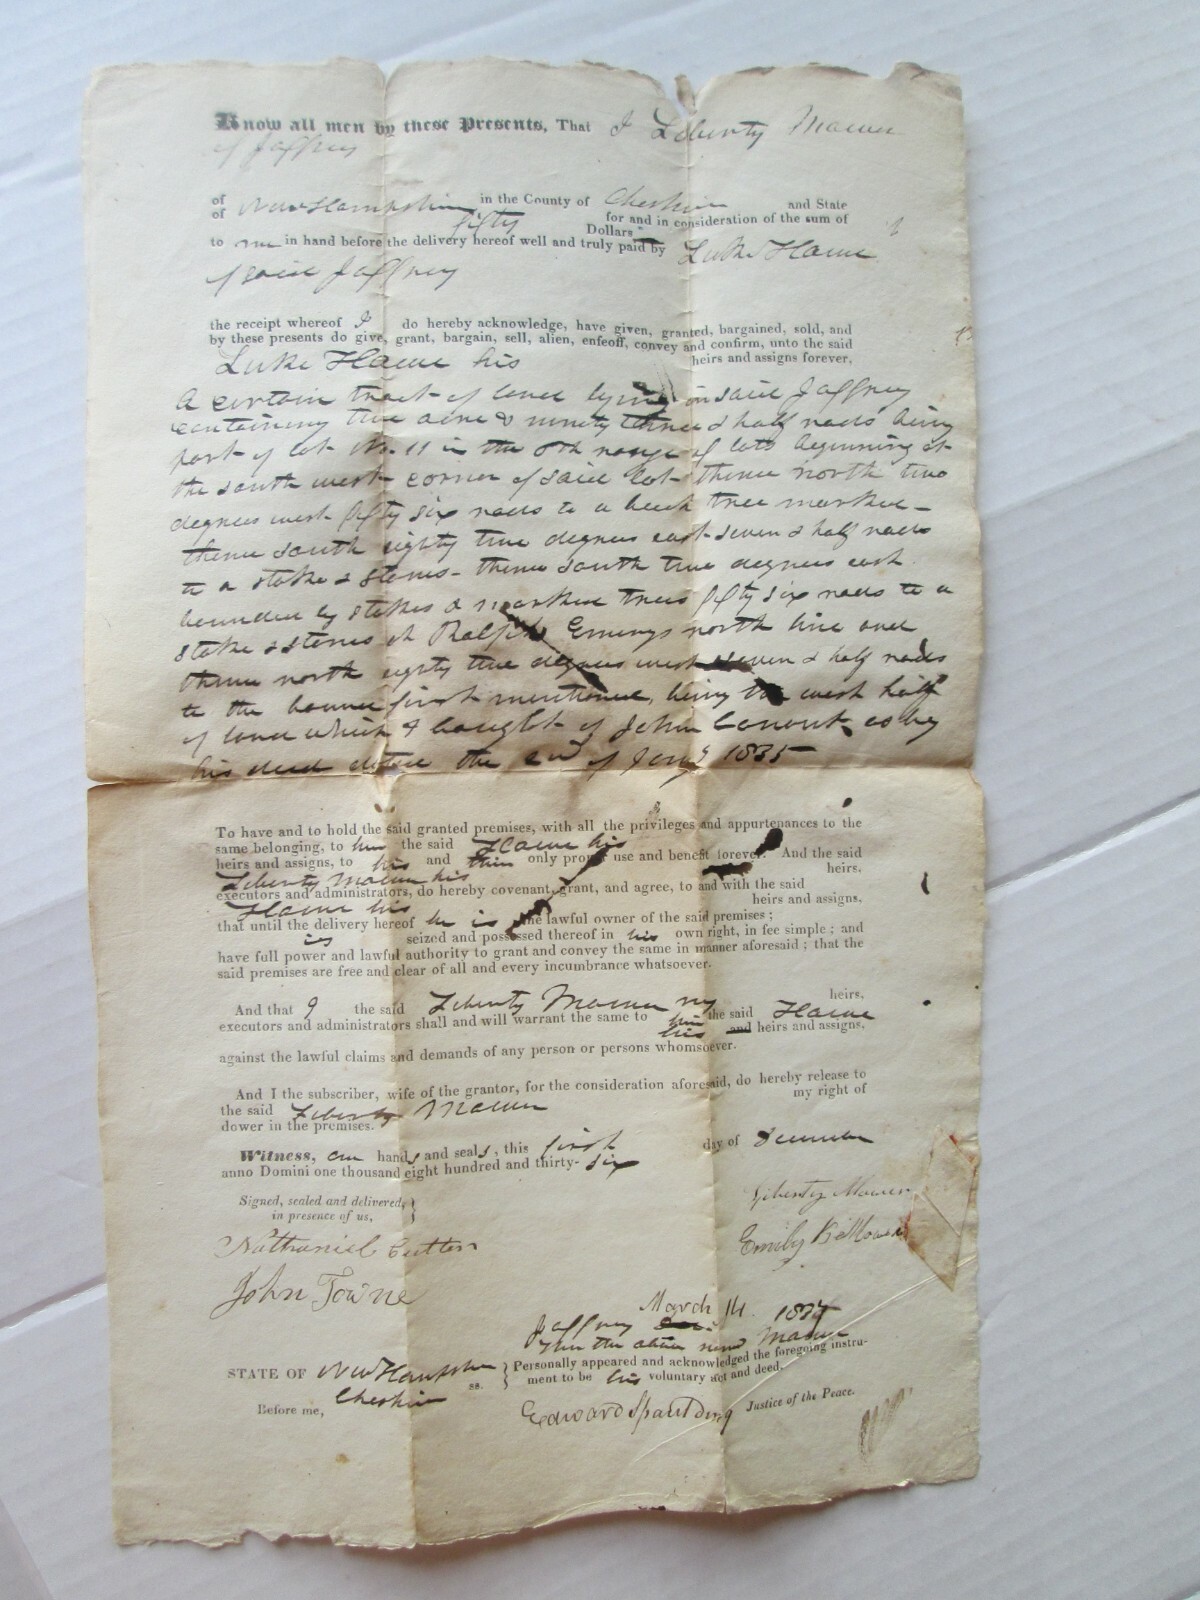 Know all men by these Presents, That I Liberty Mower
of Jaffrey
of in the County of Cheshire and State
of New Hampshire for and in consideration of the sum of
fifty Dollars
to me in hand before the delivery hereof well and truly paid by Luke Howe
of said Jaffrey
the receipt whereof I do hereby acknowledge, have given, granted, bargained, sold, and
by these presents do give, grant, bargain, sell, alien, enfeoff, convey and confirm, unto the said
Luke Howe his heirs and assigns forever,
A certain tract of land lying in said Jaffrey
containing two acre & ninety three & half rods being
part of lot No. 11 in the range of lots beginning at
the south west corner of said lot thence north two
degrees west fifty six rods to a beech tree marked -
thence south eighty two degrees east seven & half rods
to a stake & stones - thence south two degrees east
bounded by stakes & marked trees fifty six rods to a
stake & stones at Ralph Emerys north line and
thence north eighty two degrees west seven & half rods
to the bounds first mentioned, being the west half
of land which I bought of John Conant as by
his deed dated the 2nd of Jany 1835
To have and to hold the said granted premises, with all the privileges and appurtenances to the
same belonging, to him the said Howe his
heirs and assigns, to his and their only proper use and benefit forever. And the said
Liberty Mower his heirs,
executors and administrators, do hereby covenant, grant, and agree, to and with the said
Howe his heirs and assigns,
that until the delivery hereof he is the lawful owner of the said premises;
is seized and possessed thereof in his own right, in fee simple; and
have full power and lawful authority to grant and convey the same in manner aforesaid; that the
said premises are free and clear of all and every incumbrance whatsoever.
And that I the said Liberty Mower my heirs,
executors and administrators shall and will warrant the same to him the said Howe
his and heirs and assigns,
against the lawful claims and demands of any person or persons whomsoever.
And I the subscriber, wife of the grantor, for the consideration aforesaid, do hereby release to
the said Liberty Mower my right of
dower in the premises.
Witness, our hands and seals, this first day of December
anno Domini one thousand eight hundred and thirty-six
Signed, sealed and delivered,
in presence of us,
Liberty Mower
Nathaniel Cutter
Emily
John Towne
March 14. 1837
Jaffrey
then the above named Mower
STATE OF New Hampshire Personally appeared and acknowledged the foregoing instru-
Cheshire ss. ment to be his voluntary act and deed.
Before me, Edward Spaulding Justice of the Peace.